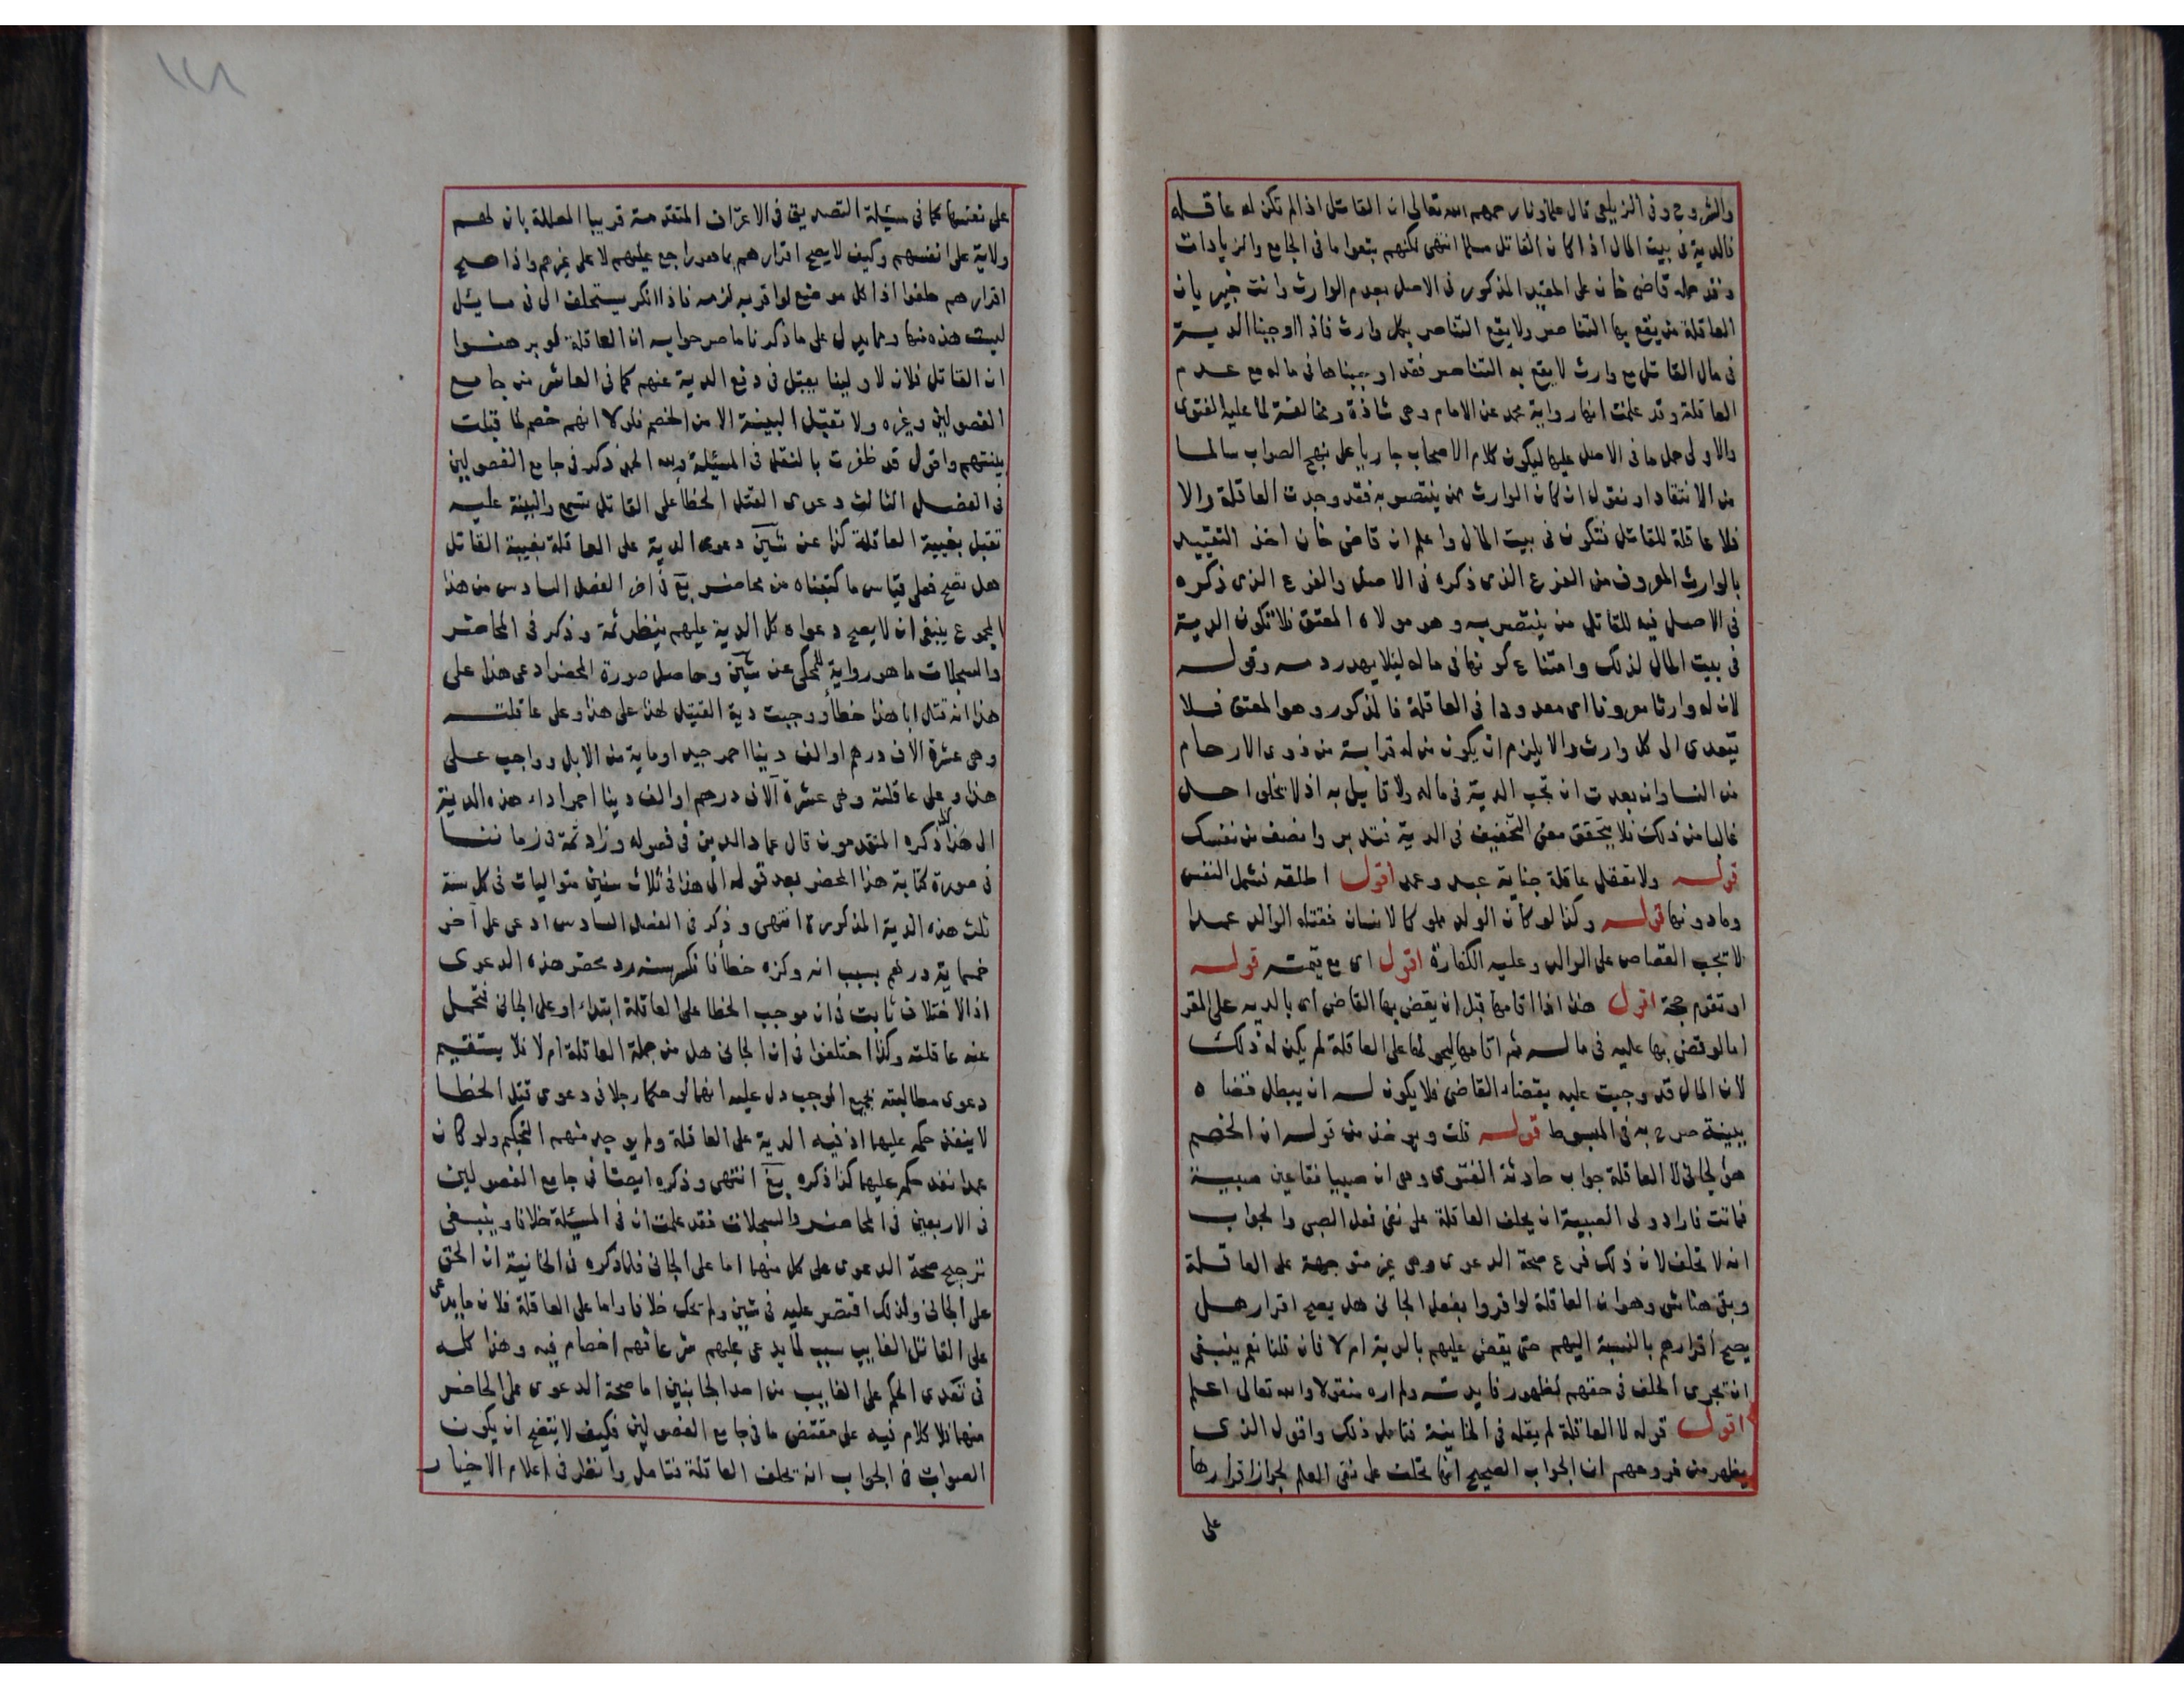 والشروح وفى الزيلعى قال علماؤنا رحمهم الله تعالى ان القاتل اذا لم تكن له عاقلة
فالدية فى بيت المال اذا كان القاتل مسلما انتهى لكنهم تبعوا ما فى الجامع والزيادات
وقد حمله قاضى خان على المقيد المذكور فى الاصل بعدم الوارث وانت خبير بان
العاقلة من يقع بها التناصر ولا يقع التناصر بكل وارث فاذا اوجبنا الدية
فى مال القاتل مع وارث لا يقع به التناصر فقد اوجبناها فى ماله مع عدم
العاقلة وقد علمت انها رواية محمد عن الامام وهى شاذة ومخالفة لما عليه الفتوى
والاولى حمل ما فى الاصل عليها ليكون كلام الاصحاب جاريا على نهج الصواب سالما
من الانتقاد او نقول ان كان الوارث ممن ينتصر به فقد وجدت العاقلة والا
فلا عاقلة للقاتل فتكون فى بيت المال واعلم ان قاضى خان اخذ التقييد
بالوارث المعروف من الفرع الذى ذكره فى الاصل والفرع الذى ذكره
فى الاصل فيه للقاتل من ينتصر به وهو مولاه المعتق فلا تكون الدية
فى بيت المال لذلك وامتناع كونها فى ماله ليلا يهدر دمه وقوله
لان له وارثا معروفا اى معدودا فى العاقلة فالمذكور وهو المعتق فلا
يتعدى الى كل وارث والا يلزم ان يكون من له قرابة من ذوى الارحام
من النسا وان بعدت ان تجب الدية فى ماله ولا قايل به اذ لا يخلو احد
غالبا من ذلك فلا يتحقق معنى التخفيف فى الدية فتدبر وانصف من نفسك
قوله ولا تعقل عاقلة جناية عبد وعمد اقول اطلقه فشمل النفس
وما دونها قوله وكذا لو كان الولد مملوكا لانسان فقتله الوالد عمدا
لا تجب القصاص على الوالد وعليه الكفارة اقول اى مع قيمته قوله
او تقوم حجة اقول هذا اذا اقامها قبل ان يقضى بها القاضى اى بالدية على المقر
اما لو قضى بها عليه فى ماله ثم اقامها ليحولها على العاقلة لم يكن له ذلك
لان المال قد وجبت عليه بقضاء القاضى فلا يكون له ان يبطل قضاه
ببينة صرح به فى المبسوط قوله قلت ويوخذ من قوله ان الخصم
هو الجانى لا العاقلة جواب حادثة الفتوى وهى ان صبيا فقا عين صبية
فماتت فاراد ولى الصبية ان يحلف العاقلة على نفى فعل الصبى والجواب
انه لا تحلف لان ذلك فرع صحة الدعوى وهى غير متوجهة على العاقلة
وبقى هنا شى وهو ان العاقلة لو اقروا بفعل الجانى هل يصح اقرار هل
يصح اقرارهم بالنسبة اليهم حتى يقضى عليهم بالدية ام لا فان قلنا نعم ينبغى
ان تجرى الحلف فى حقهم لظهور فايدته ولم اره منقولا والله تعالى اعلم
اقول قوله لا العاقلة لم يقله فى الخانية فتامل ذلك واقول الذى
يظهر من فروعهم ان الجواب الصحيح انها تحلف على نفى العلم لجواز اقرارها
على
على نفسها كما فى مسئلة التصديق فى الاعتراف المتقدمة قريبا المعللة بان لهم
ولاية على انفسهم وكيف لا يصح اقرارهم بما هو راجع عليهم لا على غيرهم واذا صح
اقرارهم حلفوا اذ كل موضع لو اقر به لزمه فاذا انكر يستحلف الى فى مسايل
ليست هذه منها ومما يدل على ما ذكرنا ما صرحوا به ان العاقلة لو برهنوا
ان القاتل فلان لا ولينا يقبل فى دفع الدية عنهم كما فى العاشر من جامع
الفصولين وغيره ولا تقبل البينة الا من الخصم فلولا انهم خصم لما قبلت
بينتهم واقول قد ظفرت بالنقل فى المسئلة ولله الحمد ذكر فى جامع الفصولين
فى الفصل الثالث دعوى القتل الخطأ على القاتل تسمع والبينة عليه
تقبل بغيبة العاقلة كذا عن شين دعوى الدية على العاقلة بغيبة القاتل
هل تصح فعلى قياس ما كتبناه من محاضر بغ فى اخر الفصل السادس من هذا
المجموع ينبغى ان لا يصح دعواه كل الدية عليهم ينظر ثمة وذكر فى المحاضر
والسجلات ما هو رواية للمحكى عن شين وحاصل صورة المحضر ادعى هذا على
هذا انه قتل ابا هذا خطأ ووجبت دية القتيل لهذا على هذا وعلى عاقلته
وهى عشرة الاف درهم او الف دينا احمر جيد او ماية من الابل وواجب على
هذا وعلى عاقلته وهى عشرة آلاف درهم او الف دينا احمر اداء هذه الدية
الى هذا كذا ذكره المتقدمون قال عماد الدين فى فصوله وزاد ثمة فى زماننا
فى صورة كتابة هذا المحضر بعد قوله الى هذا فى ثلاث سنين متواليات فى كل سنة
ثلث هذه الدية المذكورة انتهى وذكر فى الفصل السادس ادعى على آخر
خمساية درهم بسبب انه وكزه خطأ فا نكسر سنه رد محضر هذه الدعوى
اذ الاختلاف ثابت فى ان موجب الخطا على العاقلة ابتداء او على الجانى فتحمل
عنه عاقلته وكذا اختلفوا فى ان الجانى هل من جملة العاقلة ام لا فلا يستقيم
دعوى مطالبته بجميع الموجب دل عليه انهما لو حكما رجلا فى دعوى قتل الخطا
لا ينفذ حكمه عليهما اذ فيه الدية على العاقلة ولم يوجد منهم التحكيم ولو كان
عمدا نفذ حكمه عليهما كذا ذكره بغ انتهى وذكره ايضا فى جامع الفصولين
فى الاربعين فى المحاضر والسجلات فقد علمت ان فى المسئلة خلافا وينبغى
ترجيح صحة الدعوى على كل منهما اما على الجانى فلما ذكره فى الخانية ان الحق
على الجانى ولذلك اقتصر عليه فى شين ولم تحك خلافا واما على العاقلة فلان ما يدعى
على القاتل الغايب سبب لما يدعى عليهم ... اخصام فيه وهذا كله
فى تعدى الحكم على الغايب من احد الجانبين اما صحة الدعوى على الحاضر
منهما فلا كلام فيه على مقتضى ما فى جامع الفصولين فكيف لا يتضح ان يكون
الصواب فى الجواب انه تحلف العاقلة فتامل وانظر فى اعلام الاخيار